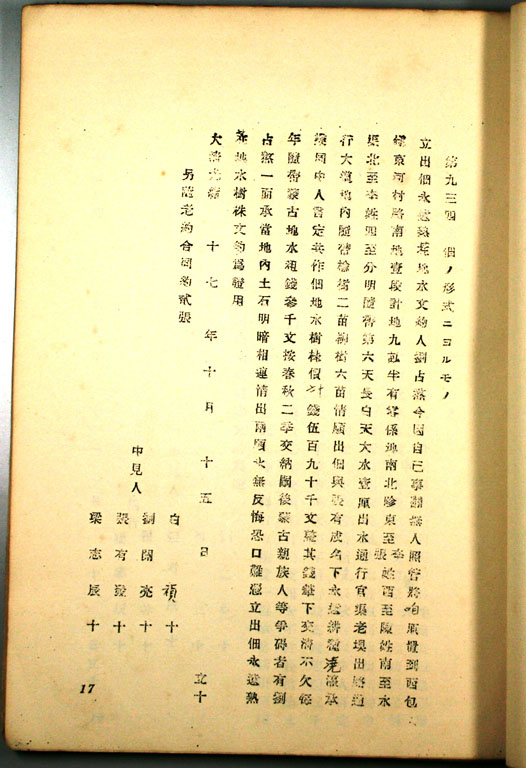 第九三四 佃ノ形式ニヨルモノ
立出佃永遠熟地水文約人劉占熬今因自己事繁無人照管將咱原置到西包
鎮京河村路南地壹段計地九畝半有零係地南北畛東至張李姓西至陳姓南至水
渠北至李姓四至分明隨帶第六天長白天大水壹厘出水通行官渠老垻出路通
行大道地內隨帶榆樹二苗柳樹六苗情願出佃與張有成名下永遠耕種澆灌承
緣同中人言定共作佃地水樹株價錢伍百九十千文整其錢筆下交清不欠每
年隨帶蒙古地水通錢叁千文按春秋二季交納嗣後蒙古親族人等爭碍者有劉
占熬一面承當地內土石明暗相連情出兩願永無反悔恐口難憑立出佃永遠熟
地水樹株文約爲證用
大清光緒十七年十月十五日 立十
另隨老約合同約貳張
中見人
白 禎十
劉開亮十
張有發十
梁志辰十
17